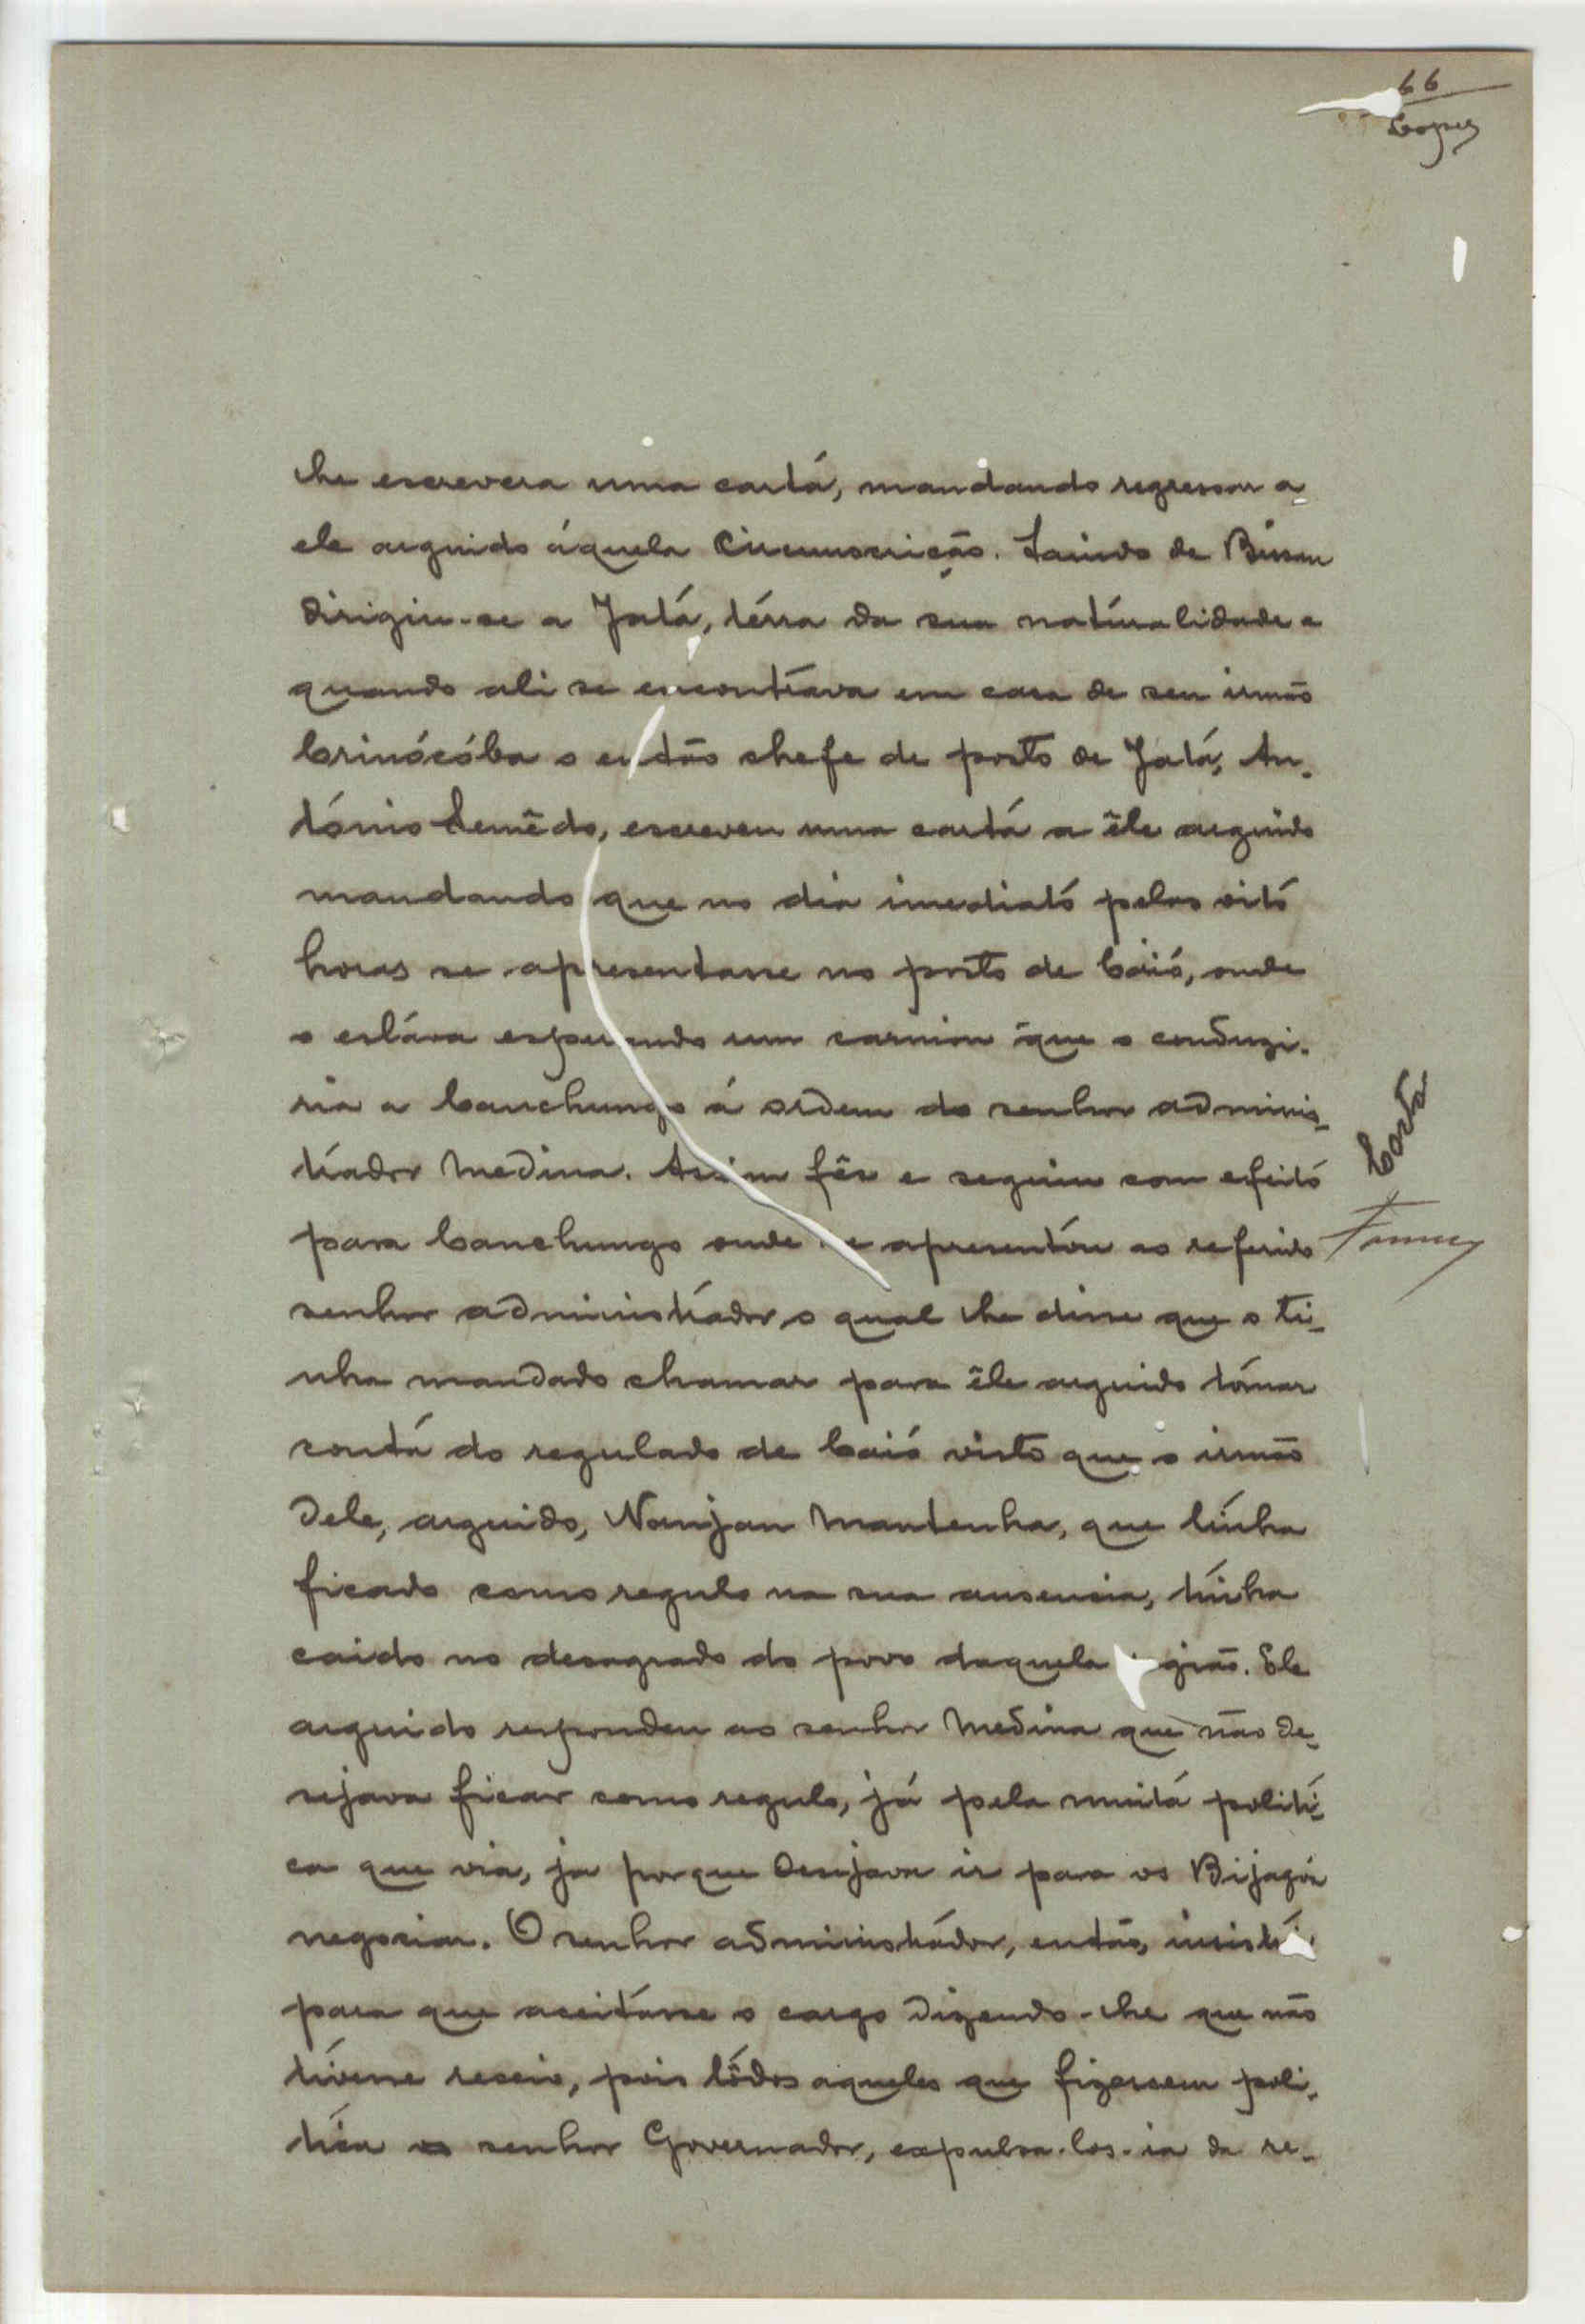 66
Lopes
lhe escrevera uma carta, mandando regressar a
ele arguido áquela Circunscrição. Saindo de Bissau
dirigiu-se a Jatá, térra da sua naturalidade e
quando ali se encontrava em casa de seu irmão
Crinócóba o então chefe de posto de Jatá, An-
tónio Semêdo, escreveu uma carta a êle arguido
mandando que no dia imediato pelas oito
horas se apresentasse no posto de Caió, onde
o estáva esperando um camion que o conduzi-
ria a Canchungo á ordem do senhor adminis-
trador Medina. Assim fês e seguiu com efeito
para Canchungo onde se apresentou ao referido
senhor administrador, o qual lhe disse que o ti-
nha mandado chamar para êle arguido tomar
conta do regulado de Caió visto que o irmão
dele, arguido, Nanjan Mantenha, que tinha
ficado como regulo na sua ausencia, tinha
caido no desagrado do povo daquela gião. Ele
arguido respondeu ao senhor Medina que não de-
sejava ficar como regulo, já pela muita politi-
ca que via, ja porque desejava ir para os Bijagós
negociar. O senhor administrador, então, insistiu
para que aceitasse o cargo dizendo-lhe que não
tivesse receio, pois tôdos aqueles que fizessem poli-
tica o senhor Governador, expulsa-los-ia da re-
Costa